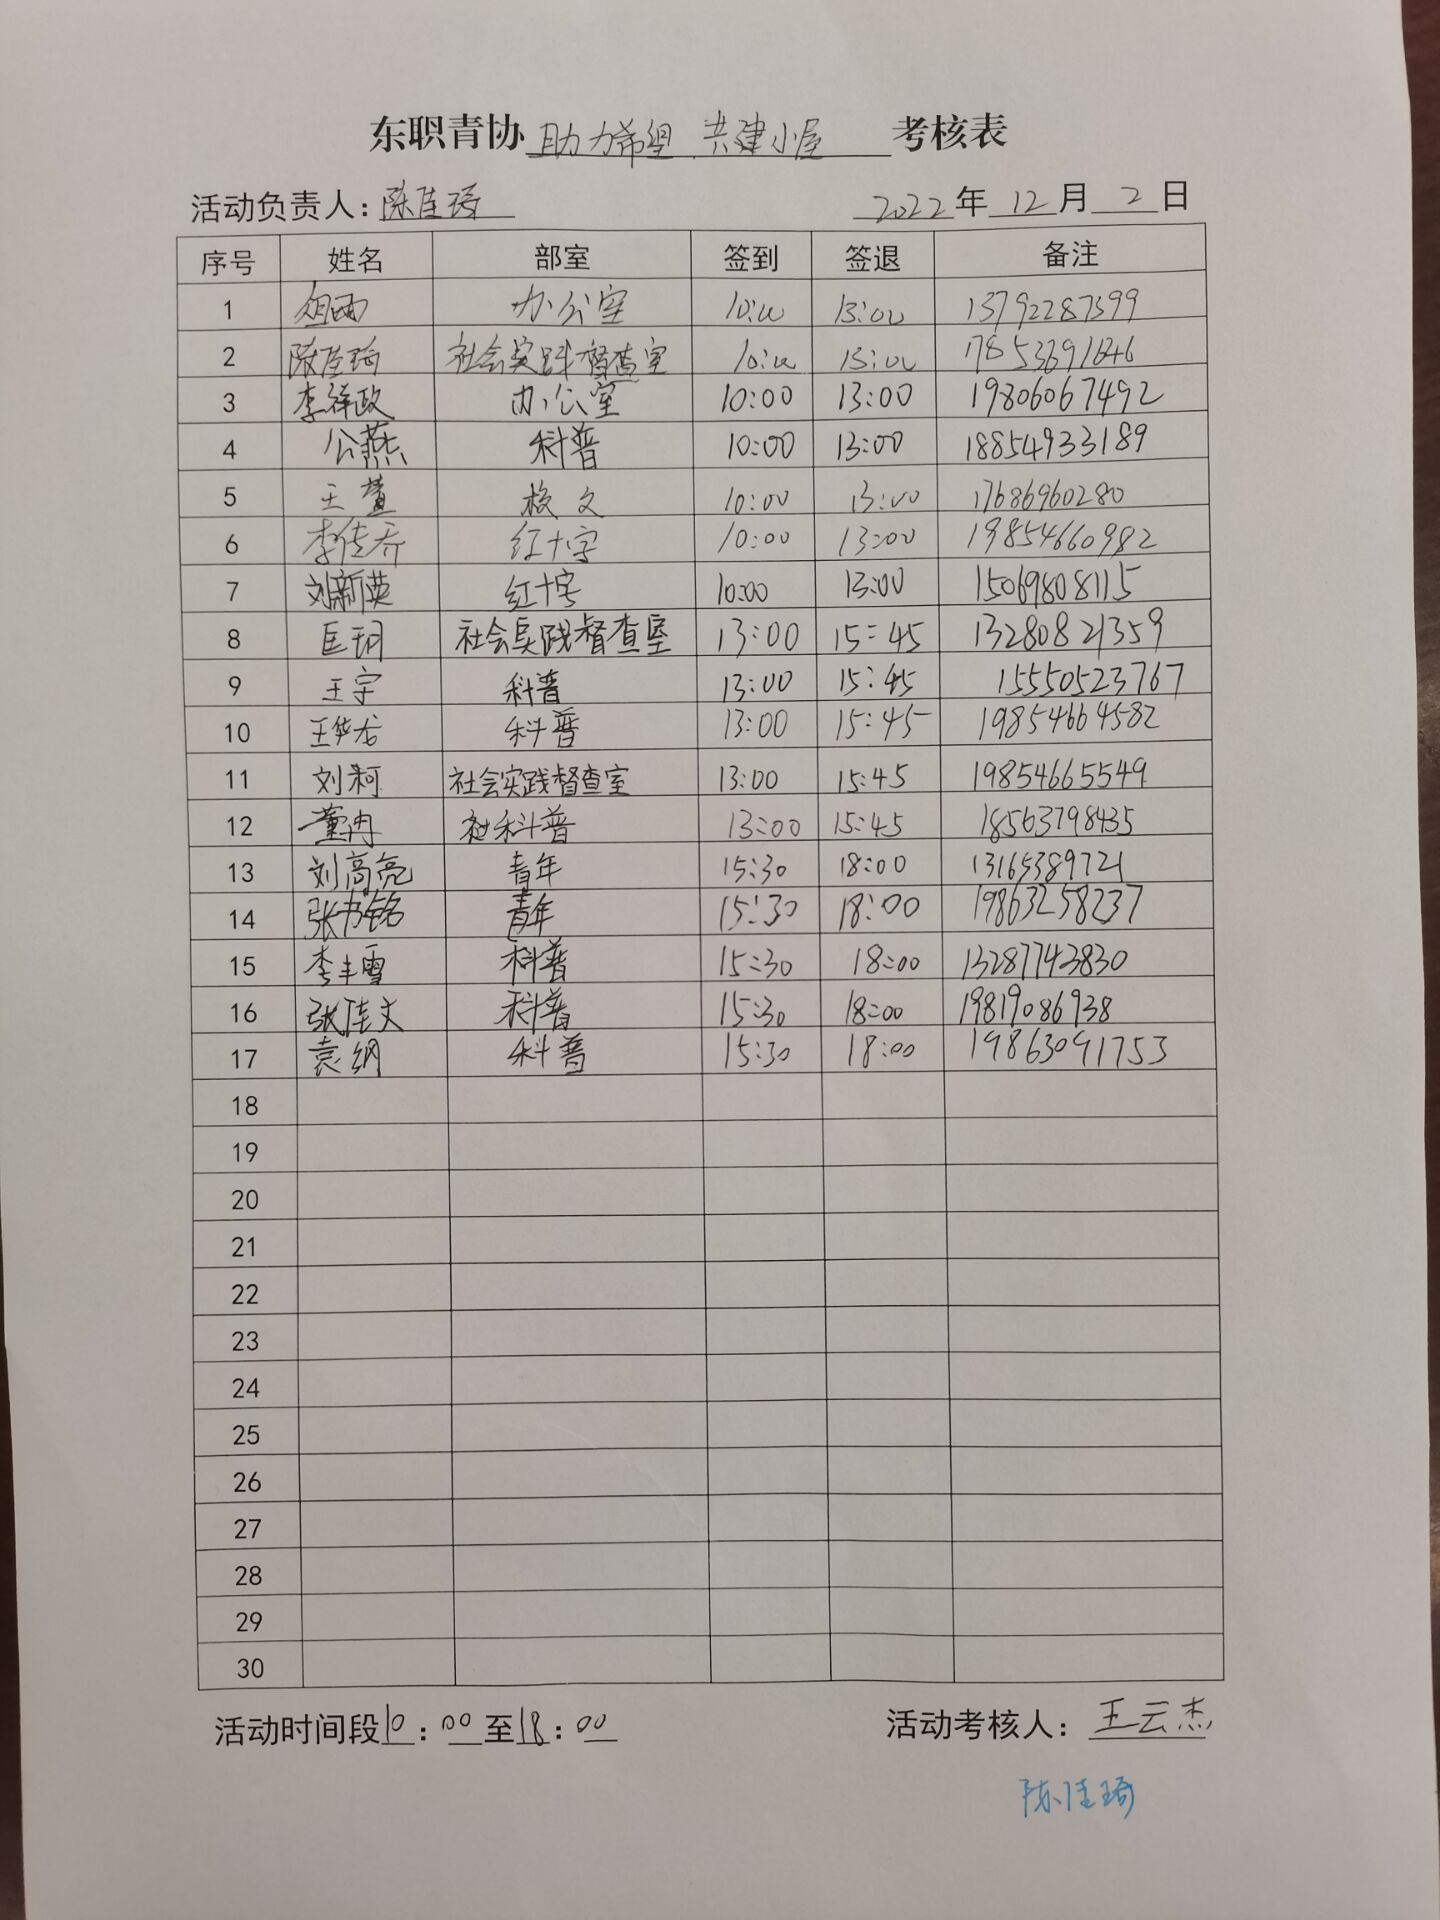 东职青协 助力希望 共建小屋 考核表
活动负责人: 陈佳琦 2022 年 12 月 2 日
序号 姓名 部室 签到 签退 备注
1 办公室 10:00 13:00 13792287599
2 陈佳琦 社会实践督查室 10:00 13:00
3 李祥政 办公室 10:00 13:00 19806067492
4 公燕 科普 10:00 13:00 18854933189
5 王萱 校文 10:00 13:00 17686960280
6 李传乔 红十字 10:00 13:00 19854660982
7 刘新英 红十字 10:00 13:00 15069808115
8 匡玥 社会实践督查室 13:00 15:45 13280821359
9 王宇 科普 13:00 15:45 15550523767
10 王华龙 科普 13:00 15:45 19854664582
11 刘 社会实践督查室 13:00 15:45 19854665549
12 董冉 科普 13:00 15:45 18563798435
13 刘高亮 青年 15:30 18:00 13165389721
14 张书铭 青年 15:30 18:00 19863258237
15 李丰雪 科普 15:30 18:00 13287743830
16 张佳文 科普 15:30 18:00 19819086938
17 袁纲 科普 15:30 18:00 19863091753
18
19
20
21
22
23
24
25
26
27
28
29
30
活动时间段 10:00 至 18:00 活动考核人: 王云杰
陈佳琦